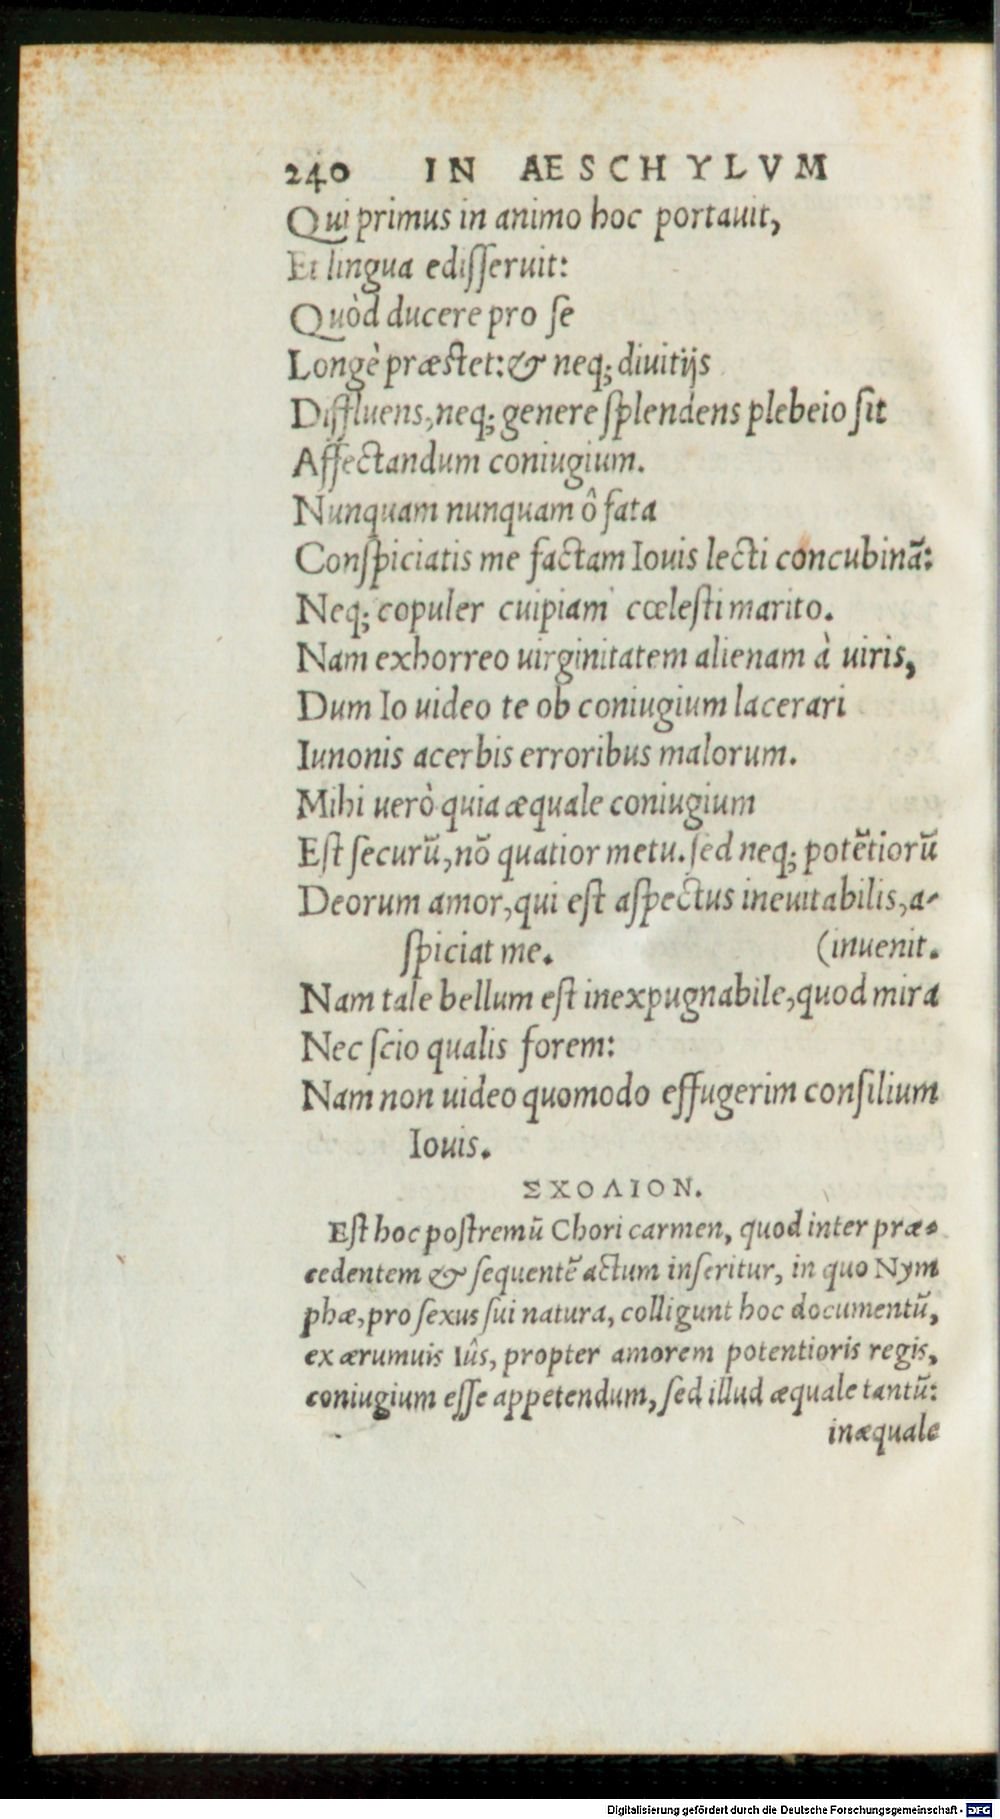 240 IN AESCHYLVM
Qui primus in animo hoc portauit,
Et lingua edisſeruit:
Quòd ducere pro ſe
Longè præstet: & neq; diuitijs
Diffluens, neq; genere ſplendens plebeio ſit
Affectandum coniugium.
Nunquam nunquam ô fata
Conſpiciatis me factam Iouis lecti concubinā:
Neq; copuler cuipiam cœleſti marito.
Nam exhorreo uirginitatem alienam à uiris,
Dum Io uideo te ob coniugium lacerari
Iunonis acerbis erroribus malorum.
Mihi uerò quia æquale coniugium
Eſt ſecurū, nō quatior metu. ſed neq; potētiorū
Deorum amor, qui eſt aſpectus ineuitabilis, a-
ſpiciat me. (inuenit.
Nam tale bellum eſt inexpugnabile, quod mira
Nec ſcio qualis forem:
Nam non uideo quomodo effugerim conſilium
Iouis.
ΣΧΟΛΙΟΝ.
Eſt hoc poſtremū Chori carmen, quod inter præ-
cedentem & ſequentē actum inſeritur, in quo Nym
phæ, pro ſexus ſui natura, colligunt hoc documentū,
ex ærumuis Iûs, propter amorem potentioris regis,
coniugium eſſe appetendum, ſed illud æquale tantū:
inæquale
Digitalisierung gefördert durch die Deutsche Forschungsgemeinschaft - DFG